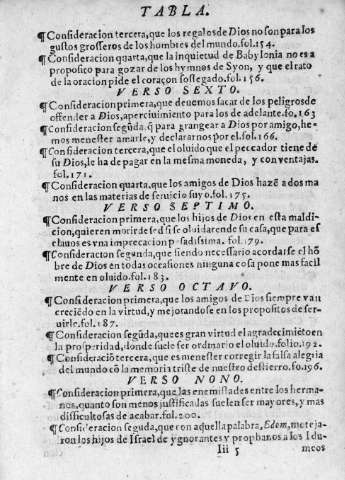 TABLA.
¶Consideracion tercera, que los regalos de Dios no son para los
gustos grosseros de los hombres del mundo. fol. 154.
¶Consideracion quarta, que la inquietud de Babylonia no es a
proposito para gozar de los hymnos de Syon, y que el rato
de la oracion pide el coraçon sossegado. fol. 156.
VERSO SEXTO.
¶Consideracion primera, que deuemos sacar de los peligros de
offender a Dios, aperciuimiento para los de adelante. fo, 163
¶Consideracion segũda, q̃ para grangear a Dios por amigo, he-
mos menester amarle, y declararnos por el. fol. 166.
¶Consideracion tercera, que el oluido que el peccador tiene de
su Dios, le ha de pagar en la mesma moneda, y con ventajas.
fol. 171.
¶Consideracion quarta, que los amigos de Dios hazẽ a dos ma
nos en las materias de seruicio suyo. fol. 175.
VERSO SEPTIMO.
¶Consideracion primera, que los hijos de Dios en esta maldi-
cion, quieren morir se si se oluidaren de su casa, que para es
clauos es vna imprecacion pesadissima. fol. 179.
¶Consideracion segunda, que siendo necessario acordarse el hõ
bre de Dios en todas occasiones ninguna cosa pone mas facil
mente en oluido. fol. 183.
VERSO OCTAVO.
¶Consideracion primera, que los amigos de Dios siempre van
creciẽdo en la virtud, y mejorandose en los propositos de ser-
uirle. fol. 187.
¶Consideracion segũda, que es gran virtud el agradecimiẽto en
la prosperidad, donde suele ser ordinario el oluido. folio. 192.
¶Consideraciõ tercera, que es menester corregir la falsa alegria
del mundo cõ la memoria triste de nuestro destierro. fo. 196.
VERSO NONO.
¶Consideracion primera, que las enemistades entre los herma-
nos, quanto son menos justificadas suelen ser mayores, y mas
difficultosas de acabar. fol. 200.
¶Consideracion segunda, que con aquella palabra, Edom, moteja-
ron los hijos de Israel de ygnorantes y prophanos a los Idu-
Iii 5 meos